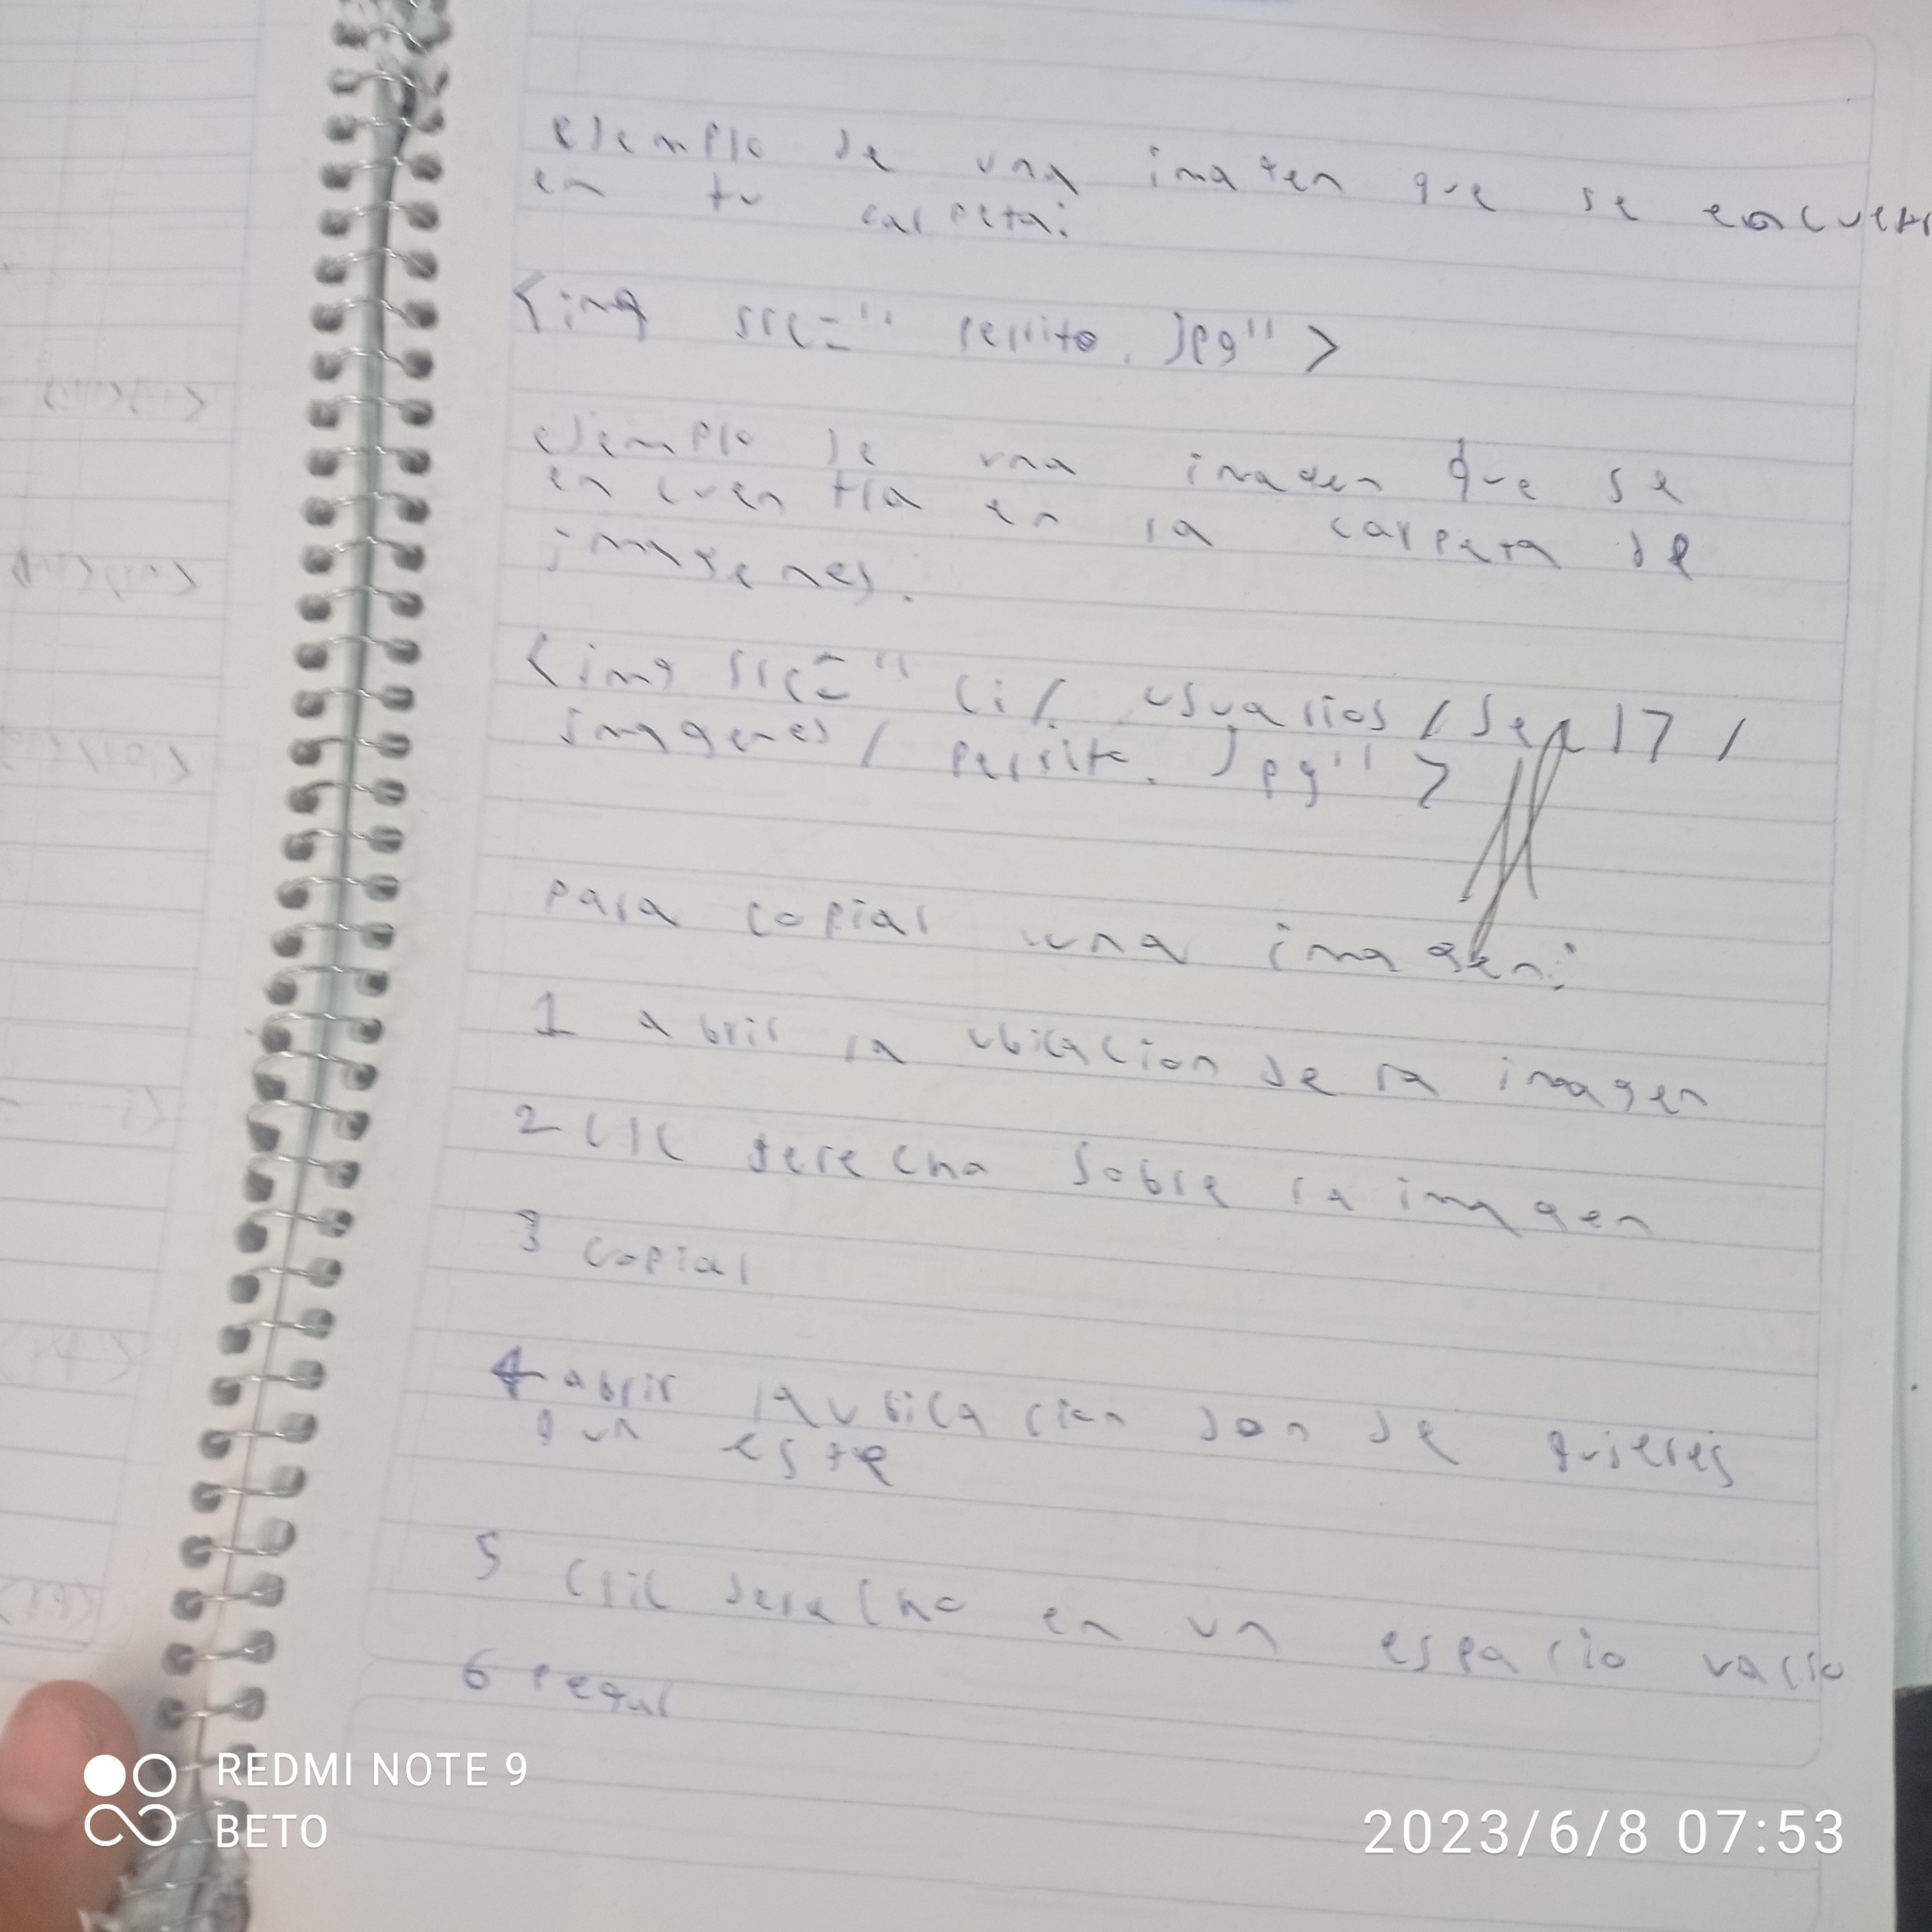 ejemplo de una imagen que se encuent
en tu carpeta:
<img src=" perrito. jpg">
ejemplo de una imagen que se
encuentra en la carpeta de
imagenes.
<img src=" C:/ usuarios / Sep 17 /
imagenes / perrito. jpg" >
para copiar una imagen:
1 abrir la ubicacion de la imagen
2 clic derecha sobre la imagen
3 copiar
4 abrir la ubicacion donde quieres
que este
5 clic derecho en un espacio vacio
6 pegar
REDMI NOTE 9
BETO
2023/6/8 07:53